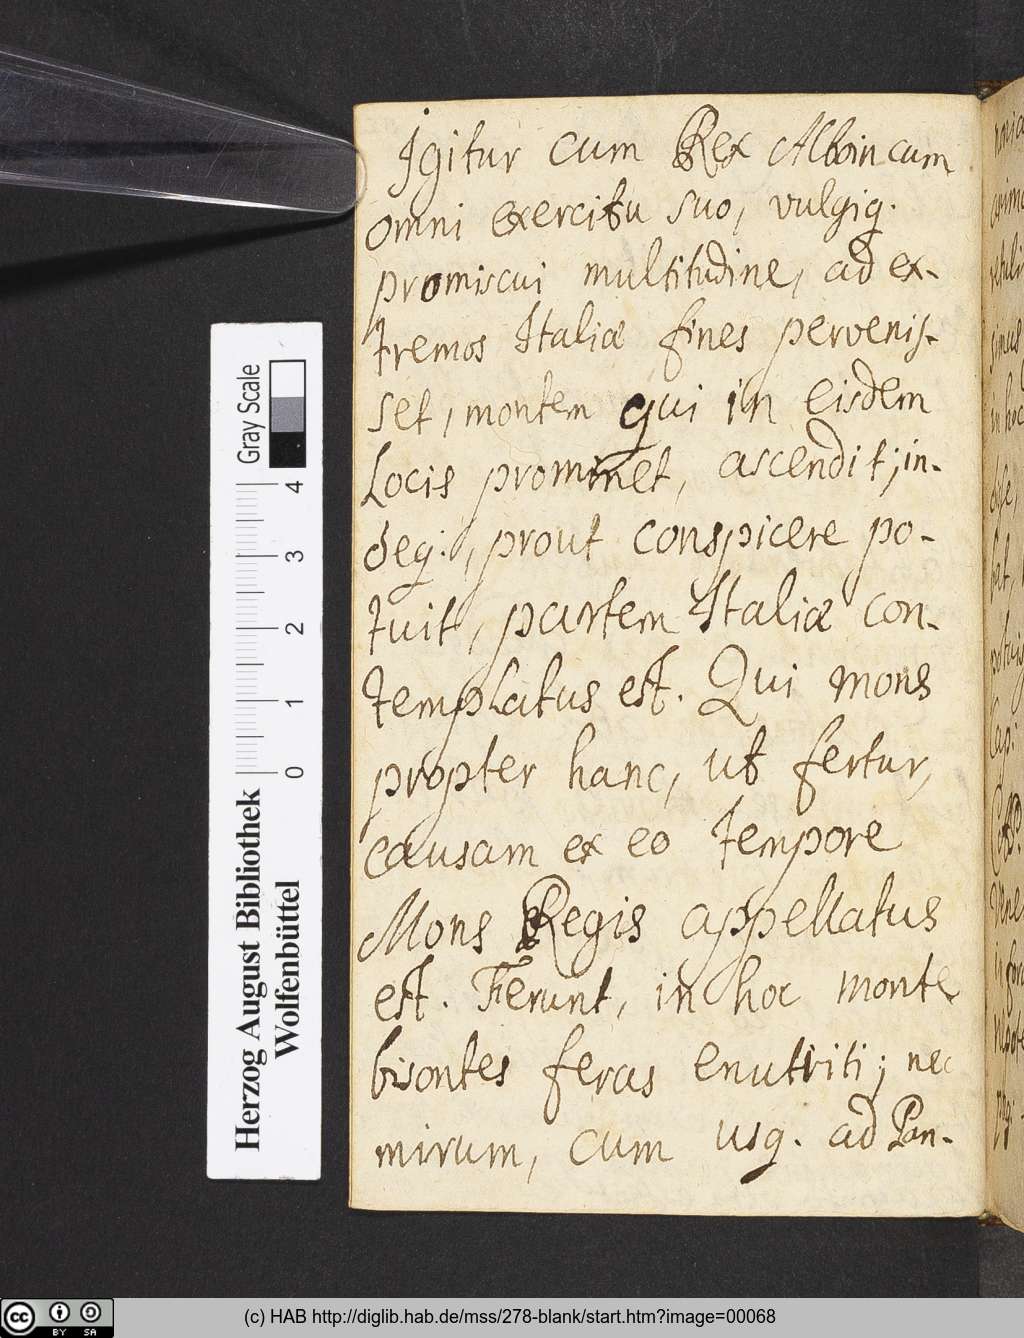 Igitur cum Rex Alboin cum
omni exercitu suo, vulgiq.
promiscui multitudine, ad ex-
tremos Italiæ fines pervenis-
set, montem qui in eisdem
Locis prominet, ascendit; in-
deq:, prout conspicere po-
tuit, partem Italiæ con-
templatus est. Qui mons
propter hanc, ut fertur,
causam ex eo tempore
Mons Regis appellatus
est. Ferunt, in hoc monte
bisontes feras enutriti; nec
mirum, cum usq. ad Pan-
Gray Scale
4
3
2
1
0
Herzog August Bibliothek
Wolfenbüttel
cc BY SA
(c) HAB http://diglib.hab.de/mss/278-blank/start.htm?image=00068